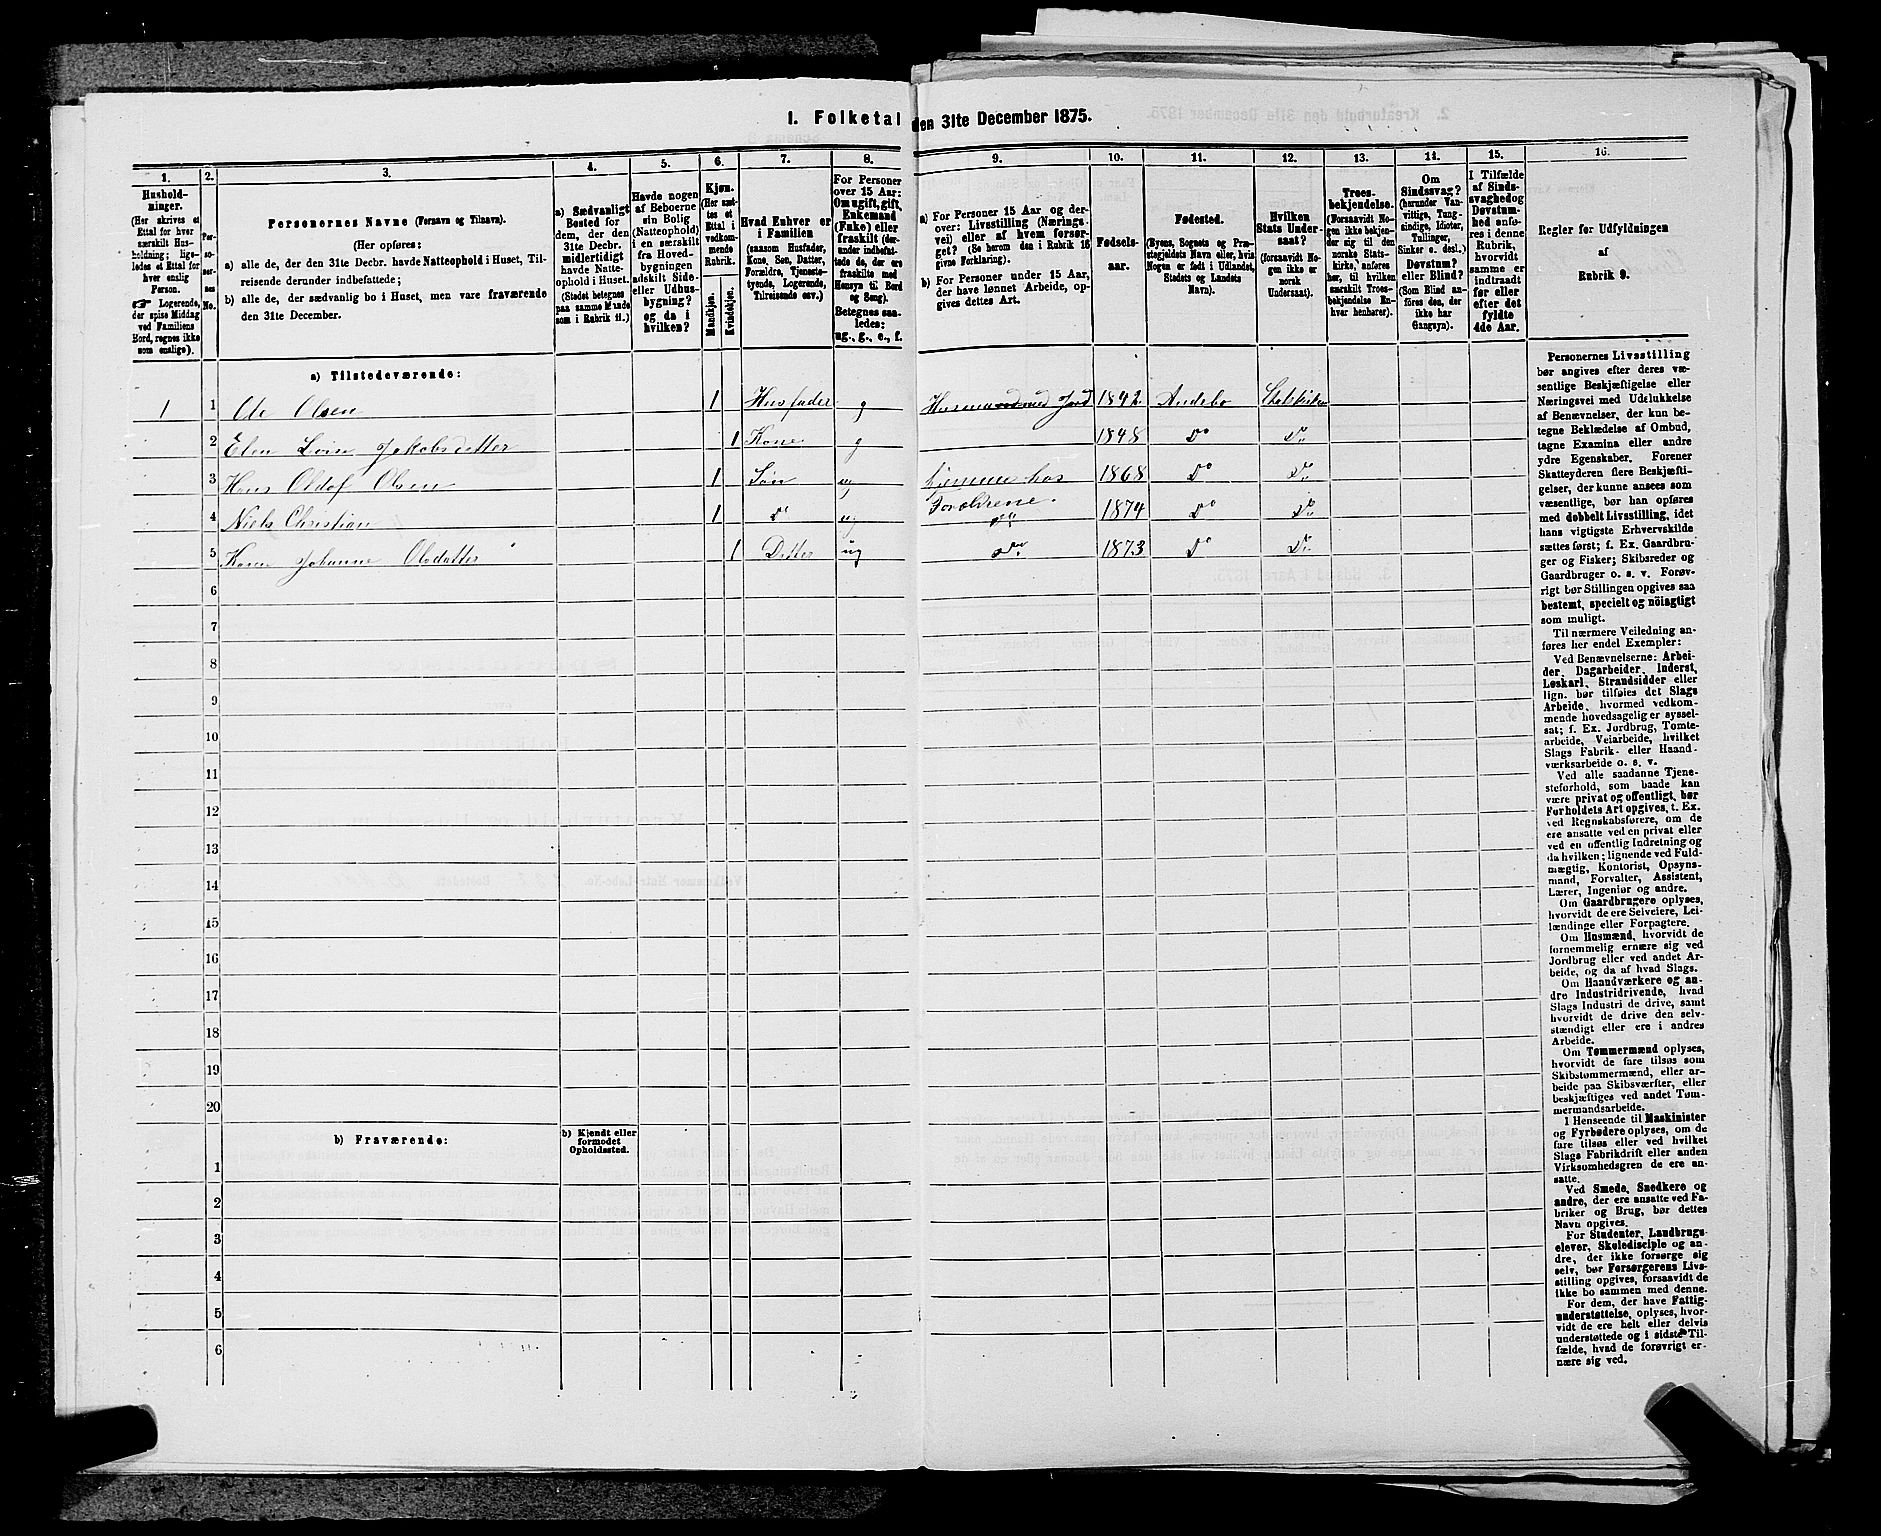 1. Folketal den 31te December 1875.
1. 2. 3. 4. 5. 6. 7. 8. 9. 10. 11. 12. 13. 14. 15. 16.
Hushold-
ninger.
(Her skrives et
Ettal for hver
særskilt Hus-
holdning; lige-
ledes et Ettal for
hver enslig
Person.
☞ Logerende,
der spise Middag
ved Familiens
Bord, regnes ikke
som enslige).
Per-
so-
ner-
nes
No.
Personernes Navne (Fornavn og Tilnavn).
(Her opføres:
a) alle de, der den 31te Decbr. havde Natteophold i Huset, Til-
reisende derunder indbefattede;
b) alle de, der sædvanlig bo i Huset, men vare fraværende
den 31te December.
a) Sædvanligt
Bosted for
dem, der den
31te Decbr.
midlertidigt
havde Natte-
ophold i Huset.
(Stedet betegnes
paa samme Maade
som i Rubrik 11.)
Havde nogen
af Beboerne
sin Bolig
(Natteophold)
i en særskilt
fra Hoved-
bygningen
adskilt Side-
eller Udhus-
bygning?
og da i
hvilken?
Kjøn.
(Her sæt-
tes et
Ettal i
vedkom-
mende
Rubrik.
Mandkjøn.
Kvindekjøn.
Hvad Enhver er
i Familien
(saasom Husfader,
Kone, Søn, Datter,
Forældre, Tjeneste-
tyende, Logerende,
Tilreisende osv.)
For Personer
over 15 Aar:
Om ugift, gift,
Enkemand
(Enke) eller
fraskilt (der-
under indbefat-
tede de, der ere
fraskilte med
Hensyn til Bord
og Seng).
Betegnes saa-
ledes:
ug., g., e., f.
a) For Personer 15 Aar og der-
over: Livsstilling (Nærings-
vei) eller af hvem forsør-
get? (Se herom den i Rubrik 16
givne Forklaring).
b) For Personer under 15 Aar,
der have lønnet Arbeide, op-
gives dettes Art.
Fødsels-
aar.
Fødested.
(Byens, Sognets og Præ-
stegjeldets Navn eller, hvis
Nogen er født i Udlandet,
Stedets og Landets
Navn).
Hvilken
Stats Under-
saat?
(forsaavidt No-
gen ikke er
norsk
Undersaat).
Troes-
bekjendelse.
(Forsaavidt No-
gen ikke bekjen-
der sig til den
norske Stats-
kirke, anføres
her, til hvilken
særskilt Troes-
bekjendelse En-
hver henhører).
Om
Sindssvag?
(herunder Van-
vittige, Tung-
sindige, Idioter,
Tullinger,
Sinker o. desl.)
Døvstum?
eller Blind?
(Som Blind an-
føres den, der
ikke har
Gangsyn).
I Tilfælde
af Sinds-
svaghed og
Døvstum-
hed anfø-
res i denne
Rubrik,
hvorvidt
samme er
indtraadt
før eller
efter det
fyldte
4de Aar.
Regler for Udfyldningen
af
Rubrik 9.
a) Tilstedeværende:
1 1 Ole Olsen 1 Husfader g Husmand med Jord 1842 Andebo
2 Elen Lovise Jakobsdatter 1 Kone g 1848 Do Do
3 Hans Oldof Olsen 1 Søn ug hjemme hos 1868 Do Do
4 Niels Christian 1 Do ug Forældrene. Do 1874 Do Do
5 Karen Johanne Olsdatter 1 Datter ug Do 1873 Do Do
6
7
8
9
10
11
12
13
14
15
16
17
18
19
20
b) Fraværende:
b) Kjendt eller
formodet
Opholdssted.
1
2
3
4
5
6
Personernes Livsstilling
bør angives efter deres væ-
sentlige Beskjæftigelse eller
Næringsvei med Udelukkelse
af Benævnelser, der kun be-
tegne Beklædelse af Ombud,
tagne Examina eller andre
ydre Egenskaber. Forener
Skatteyderen flere Beskjæfti-
gelser, der kunne ansees som
væsentlige, bør han opføres
med dobbelt Livsstilling, idet
hans vigtigste Erhvervskilde
sættes først; f. Ex. Gaardbru-
ger og Fisker; Skibsreder og
Gaardbruger o. s. v. Forøv-
rigt bør Stillingen opgives saa
bestemt, specielt og nöiagtigt
som muligt.
Til nærmere Veiledning an-
føres her endel Exempler:
Ved Benævnelserne: Arbei-
der, Dagarbeider, Inderst,
Løskarl, Strandsidder eller
lign. bør tilføies det Slags
Arbeide, hvormed vedkom-
mende hovedsagelig er syssel-
sat; f. Ex. Jordbrug, Tomte-
arbeide, Veiarbeide, hvilket
Slags Fabrik- eller Haand-
værksarbeide o. s. v.
Ved alle saadanne Tjene-
steforhold, som baade kan
være privat og offentligt, bør
Forholdets Art opgives, f. Ex.
ved Regnskabsførere, om de
ere ansatte ved en privat eller
ved en offentlig Indretning og
da hvilken; lignende ved Fuld-
mægtig, Kontorist, Opsyns-
mand, Forvalter, Assistent,
Lærer, Ingeniør og andre.
Om Gaardbrugere oplyses,
hvorvidt de ere Selveiere, Lei-
lændinge eller Forpagtere.
Om Husmænd, hvorvidt de
fornemmelig ernære sig ved
Jordbrug eller ved andet Ar-
beide, og da af hvad Slags.
Om Haandværkere og an-
dre Industridrivende, hvad
Slags Industri de drive, samt
hvorvidt de drive den selv-
stændigt eller ere i andres
Arbeide.
Om Tømmermænd oplyses,
hvorvidt de fare tilsøs som
Skibstømmermænd, eller ar-
beide paa Skibsværfter, eller
beskjæftiges ved andet Tøm-
mermandsarbeide.
I Henseende til Maskinister
og Fyrbødere oplyses, om de
fare tilsøs eller ved hvilket
Slags Fabrikdrift eller anden
Virksomhedsgren de ere an-
satte.
Ved Smede, Snedkere og
andre, der ere ansatte ved Fa-
briker og Brug, bør dettes
Navn opgives.
For Studenter, Landbrugs-
elever, Skoledisciple og an-
dre, der ikke forsørge sig
selv, bør Forsørgerens Livs-
stilling opgives, forsaavidt de
ikke bo sammen med denne.
For dem, der have Fattig-
understøttelse, oplyses, hvor-
vidt de ere helt eller delvis
understøttede og i sidste Til-
fælde, hvad de forøvrigt er-
nære sig ved.